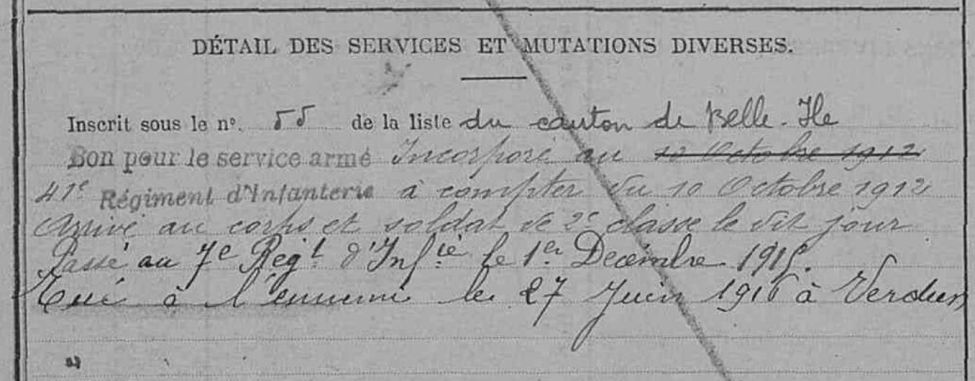 DÉTAIL DES SERVICES ET MUTATIONS DIVERSES.
Inscrit sous le nº. 55 de la liste du canton de Belle-Ile
Bon pour le service armé Incorporé au 10 Octobre 1912
41e Régiment d'Infanterie à compter du 10 Octobre 1912
Arrivé au corps et soldat de 2e classe le dit jour
Passé au 7e Régt d'Infie le 1er Décembre 1915.
Tué à l'ennemi le 27 Juin 1916 à Verdun